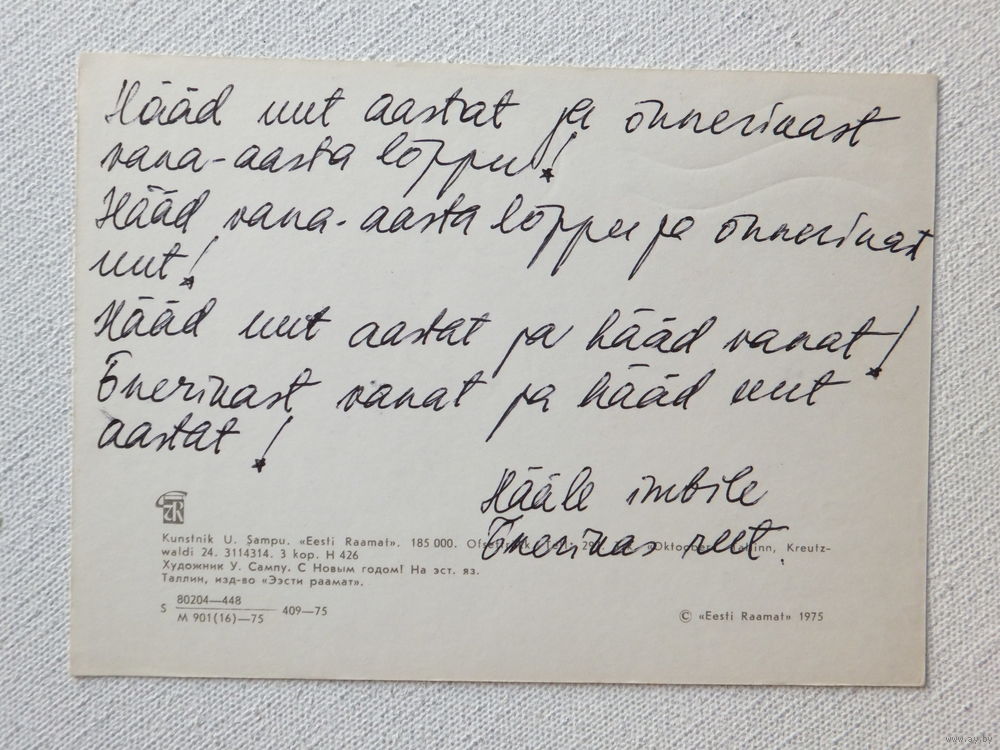 Hääd uut aastat ja õnnerinast
vana-aasta lõppu!
Hääd vana-aasta lõppu ja õnnerinast
uut!
Hääd uut aastat ja hääd vanat!
Õnerinast vanat ja hääd uut
aastat!
Hääle imbile
Õnerinas reet.
ER
Kunstnik U. Sampu. «Eesti Raamat». 185 000. «Oktoober», Tallinn, Kreutz-
waldi 24. 3114314. 3 kop. H 426
Художник У. Сампу. С Новым годом! На эст. яз.
Таллин, изд-во «Ээсти раамат».
S 80204—448 409—75
M 901(16)—75
© «Eesti Raamat» 1975
www.ay.by